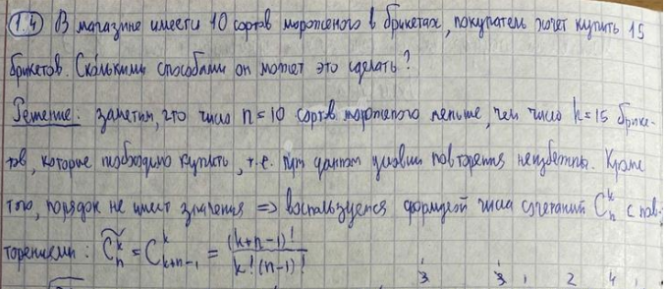 1.4 В магазине имеется 10 сортов мороженого в брикетах, покупатель хочет купить 15
брикетов. Сколькими способами он может это сделать?
Решение: заметим, что число n=10 сортов мороженого меньше, чем число k=15 брике-
тов, которые необходимо купить, т.е. при данном условии повторения неизбежны. Кроме
того, порядок не имеет значения => воспользуемся формулой числа сочетаний C_n^k с пов-
торениями: C̃_n^k = C_{k+n-1}^k = (k+n-1)! / k!(n-1)!
3 3, 2 4